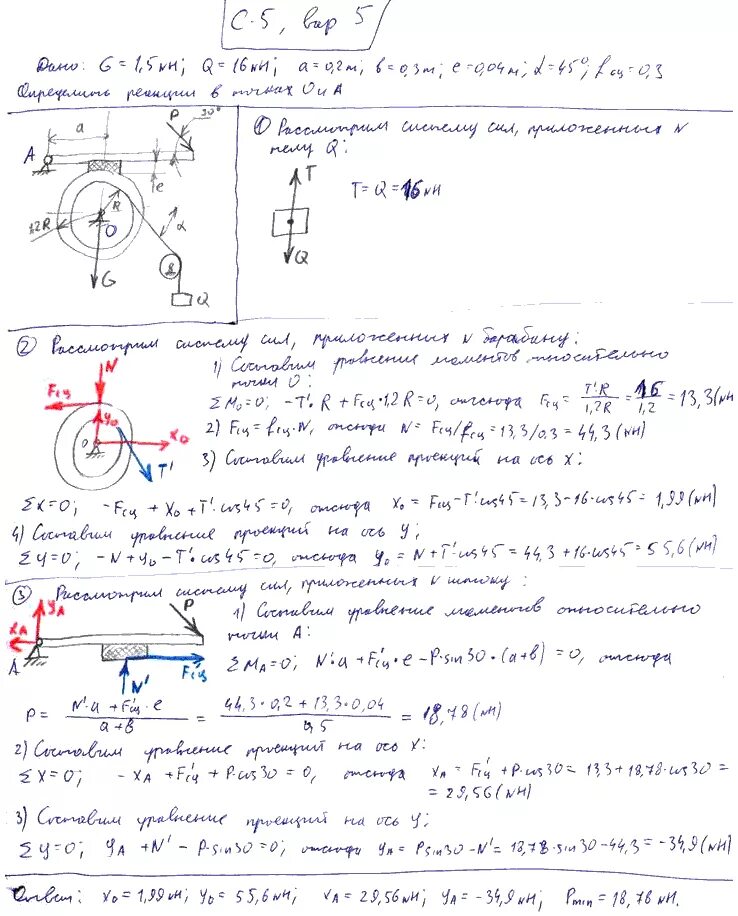 С-5, вар 5
Дано: G = 1,5 кН; Q = 16 кН; a = 0,2 м; b = 0,3 м; e = 0,04 м; α = 45°; fсц = 0,3
Определить реакции в точках O и A
a
P
30°
A
e
R
1,2R
O
α
G
Q
① Рассмотрим систему сил, приложенных к
телу Q:
T
T = Q = 16 кН
Q
② Рассмотрим систему сил, приложенных к барабану:
N
Fсц
y0
O
x0
T'
1) Составим уравнение моментов относительно
точки O:
ΣM0 = 0; -T'·R + Fсц·1,2R = 0, отсюда Fсц = T'·R/1,2R = 16/1,2 = 13,3 (кН)
2) Fсц = fсц·N, отсюда N = Fсц/fсц = 13,3/0,3 = 44,3 (кН)
3) Составим уравнение проекций на ось x:
Σx=0; -Fсц + x0 + T'·cos45 = 0, отсюда x0 = Fсц - T'·cos45 = 13,3 - 16·cos45 = 1,99 (кН)
4) Составим уравнение проекций на ось y;
Σy=0; -N + y0 - T'·cos45 = 0, отсюда y0 = N + T'·cos45 = 44,3 + 16·cos45 = 55,6 (кН)
③ Рассмотрим систему сил, приложенных к штоку:
yA
xA
A
P
F'сц
N'
1) Составим уравнение моментов относительно
точки A:
ΣMA=0; N'·a + F'сц·e - P·sin30·(a+b) = 0, отсюда
P = N'·a + F'сц·e / a+b = 44,3·0,2 + 13,3·0,04 / 0,5 = 18,78 (кН)
2) Составим уравнение проекций на ось x:
Σx=0; -xA + F'сц + P·cos30 = 0, отсюда xA = F'сц + P·cos30 = 13,3 + 18,78·cos30 =
= 29,56 (кН)
3) Составим уравнение проекций на ось y;
Σy=0; yA + N' - P·sin30 = 0; отсюда yA = Psin30 - N' = 18,78·sin30 - 44,3 = -34,9 (кН)
Ответ: x0 = 1,99 кН; y0 = 55,6 кН; xA = 29,56 кН; yA = -34,9 кН; Pmin = 18,78 кН.